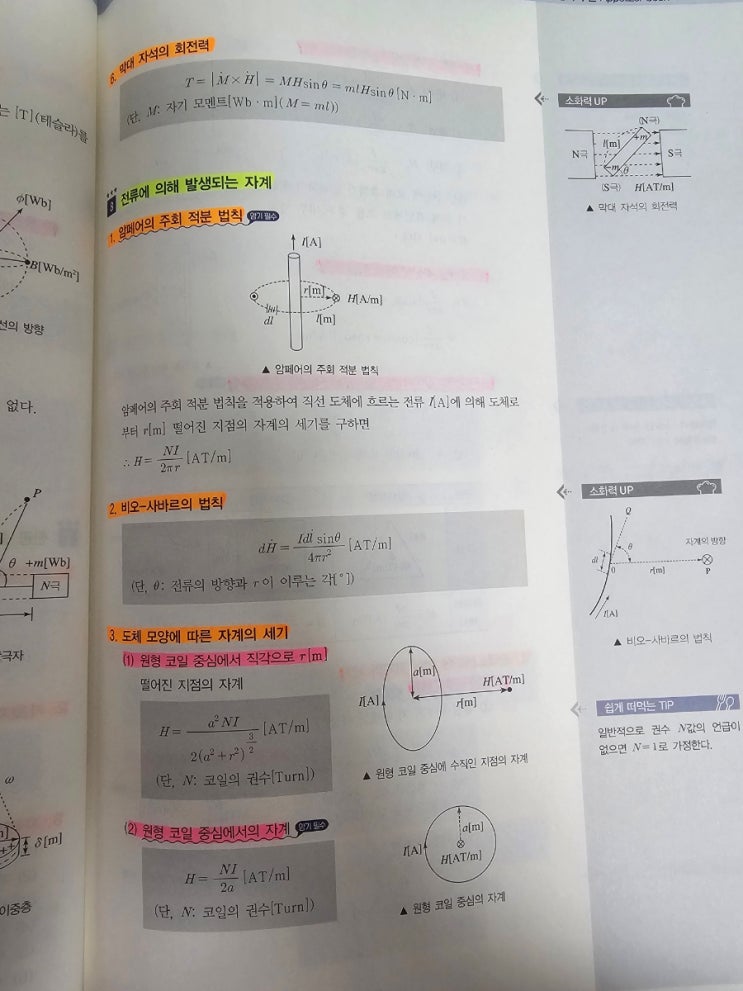 는 [T](테슬라)를
φ[Wb]
B[Wb/m²]
선의 방향
없다.
P
θ +m[Wb]
N극
극자
ω
δ[m]
이중층
6. 막대 자석의 회전력
T = |Ṁ × Ḣ| = MHsinθ = mlHsinθ [N · m]
(단, M: 자기 모멘트[Wb · m](M = ml))
8 전류에 의해 발생되는 자계
1. 암페어의 주회 적분 법칙 암기 필수
I[A]
r[m]
H[A/m]
dl
l[m]
▲ 암페어의 주회 적분 법칙
암페어의 주회 적분 법칙을 적용하여 직선 도체에 흐르는 전류 I[A]에 의해 도체로
부터 r[m] 떨어진 지점의 자계의 세기를 구하면
∴ H = NI / 2πr [AT/m]
2. 비오-사바르의 법칙
dḢ = Idl̇ sinθ / 4πr² [AT/m]
(단, θ: 전류의 방향과 r이 이루는 각[°])
3. 도체 모양에 따른 자계의 세기
(1) 원형 코일 중심에서 직각으로 r[m]
떨어진 지점의 자계
H = a²NI / 2(a² + r²)^(3/2) [AT/m]
(단, N: 코일의 권수[Turn])
a[m]
I[A]
H[AT/m]
r[m]
▲ 원형 코일 중심에 수직인 지점의 자계
(2) 원형 코일 중심에서의 자계 암기 필수
H = NI / 2a [AT/m]
(단, N: 코일의 권수[Turn])
a[m]
I[A]
H[AT/m]
▲ 원형 코일 중심의 자계
소화력 UP
(N극)
l[m]
+m
N극
S극
-m
θ
(S극)
H[AT/m]
▲ 막대 자석의 회전력
소화력 UP
Q
θ
자계의 방향
dl
0
r[m]
P
I[A]
▲ 비오-사바르의 법칙
쉽게 떠먹는 TIP
일반적으로 권수 N값의 언급이
없으면 N=1로 가정한다.